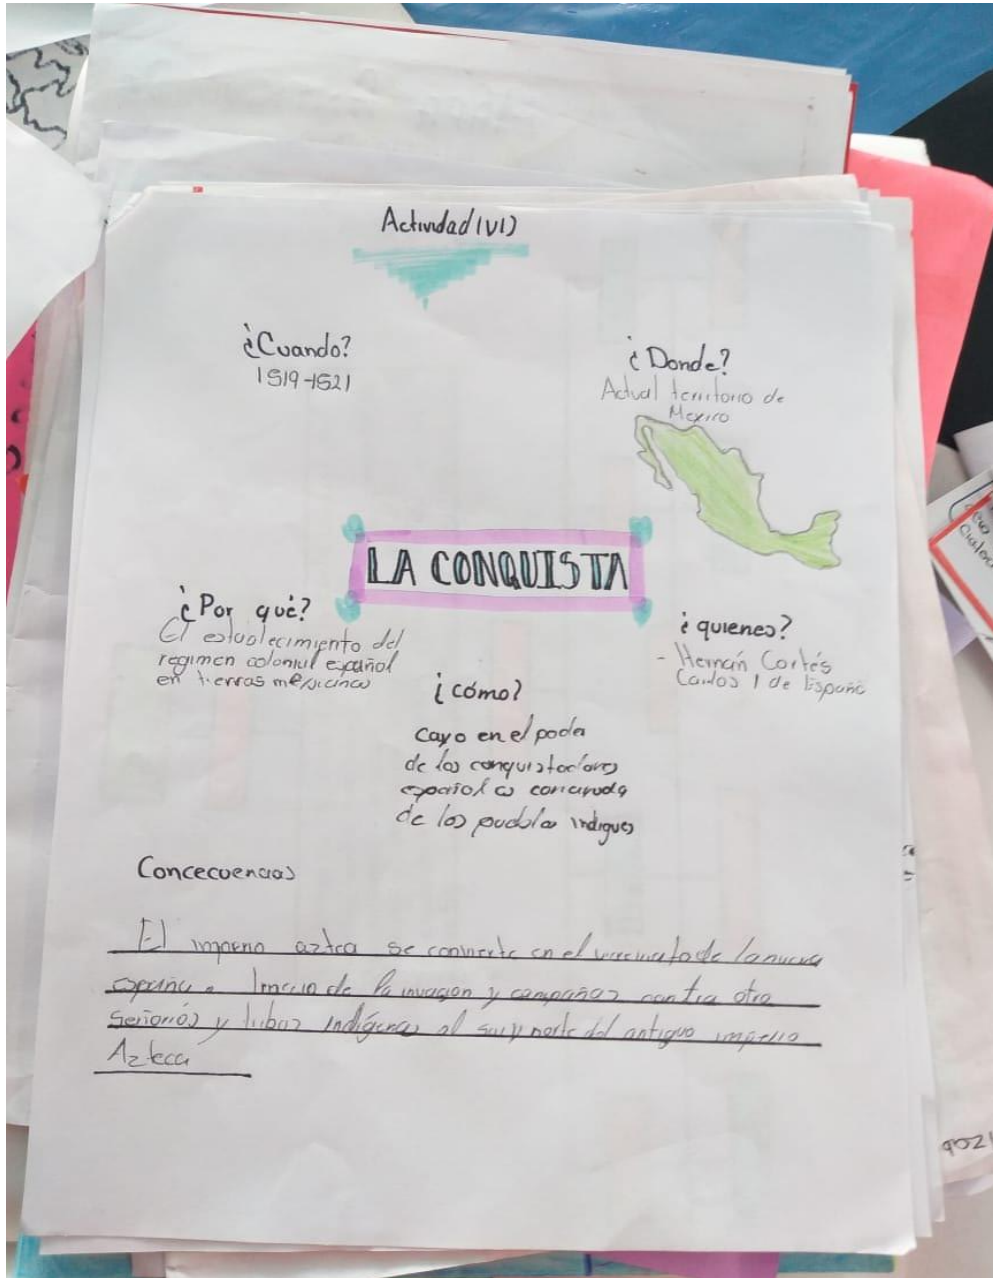 Actividad (VI)
¿Cuando?
1519-1521
¿Donde?
Actual territorio de
Mexico
LA CONQUISTA
¿Por qué?
El establecimiento del
regimen colonial español
en tierras mexicanas
¿quienes?
- Hernán Cortés
Carlos I de España
¿cómo?
Cayo en el poder
de los conquistadores
español
de los pueblos
Concecuencias
El imperio azteca se convierte en el virreinato de la nueva
españa. Inicio de la invacion y campañas contra otro
señoríos y tribus indígenas al sur y norte del antiguo imperio
Azteca